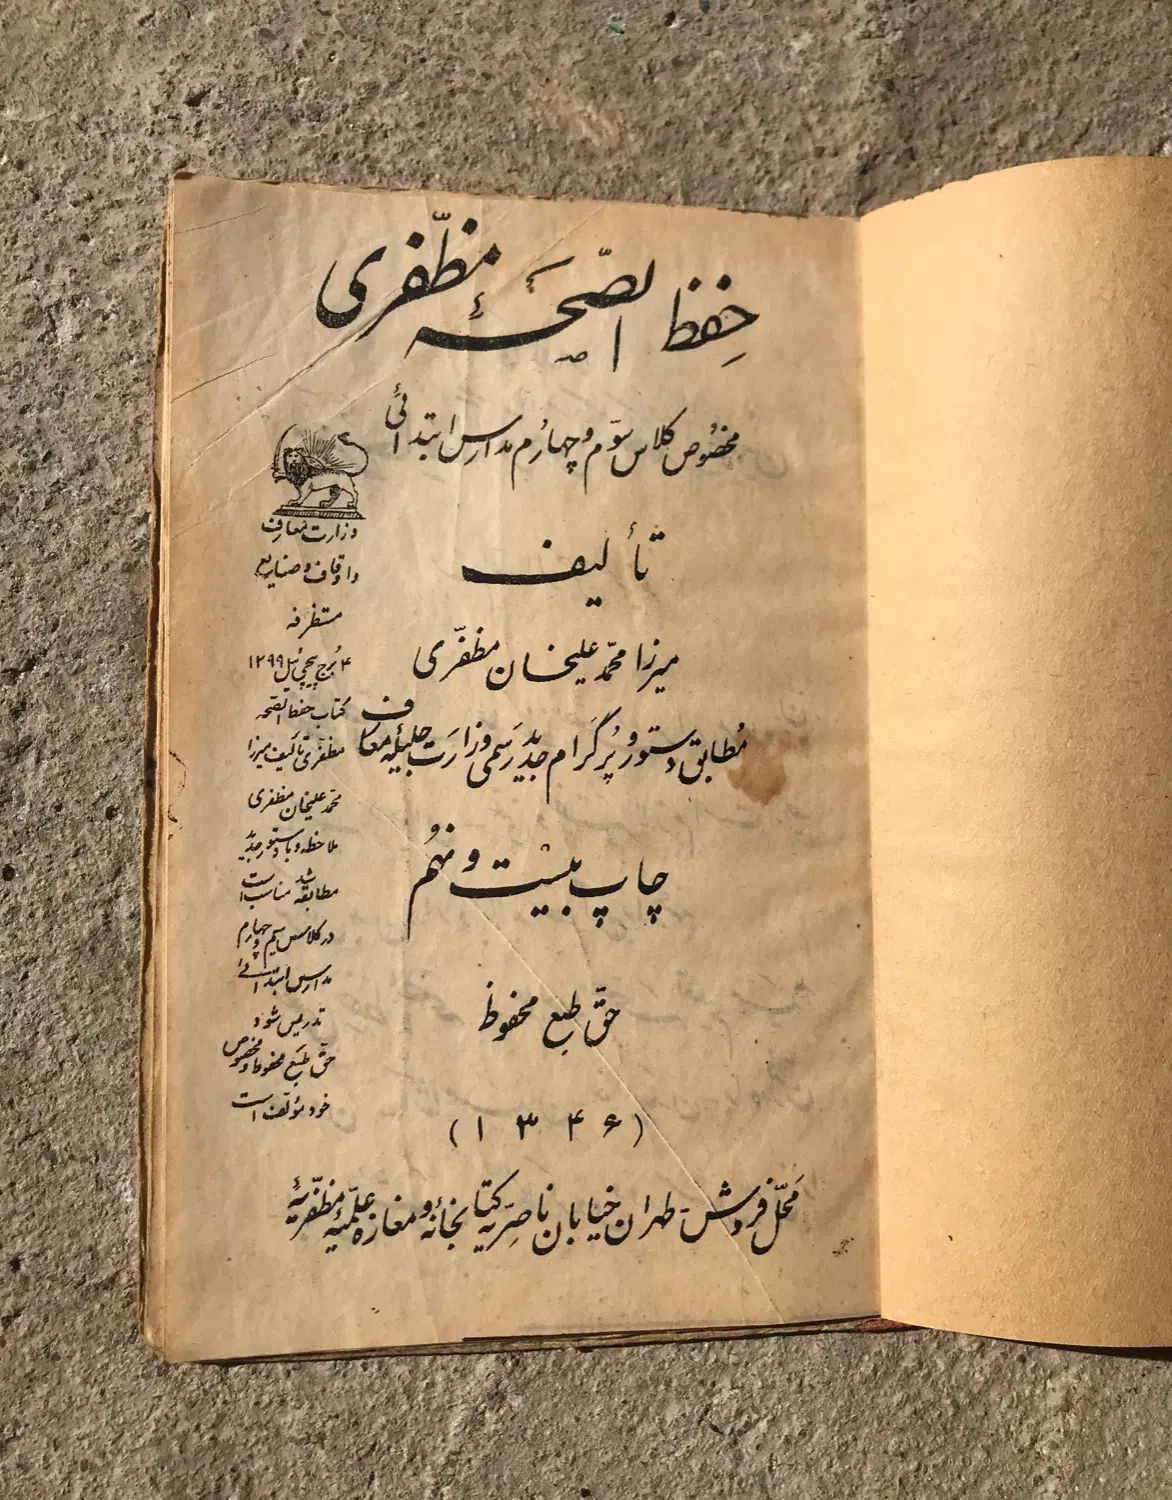 حفظ الصّحهٔ مظفّری
مخصُوص کلاس سوّم و چهارُم مدارس ابتدائی
تألیف
میرزا محمّد علیخان مظفّری
مُطابق دستور و پرُگرام جدید رَسمی وزارَت جلیلهٔ معارف
چاپ بیست و نهُم
حقّ طبع محفوظ
(۱۳۴۶)
مَحلّ فروش - طهران خیابان ناصِریّه کتابخانهٔ و مغازه علمیّهٔ مظفّریهٔ
وزارت معارف
و اوقاف و صنایع
مستظرفه
۴ بُرج پیچی ئیل ۱۲۹۹
کتاب حفظ الصّحه
مظفّری تألیف میرزا
محمّد علیخان مظفری
ملاحظه و با دستور جدید
مطابقه شد مناسب است
در کلاس سیم و چهارم
مدارس ابتدائی
تدریس شود
حقّ طبع محفوظ و مخصُوص
خود مؤلّف است